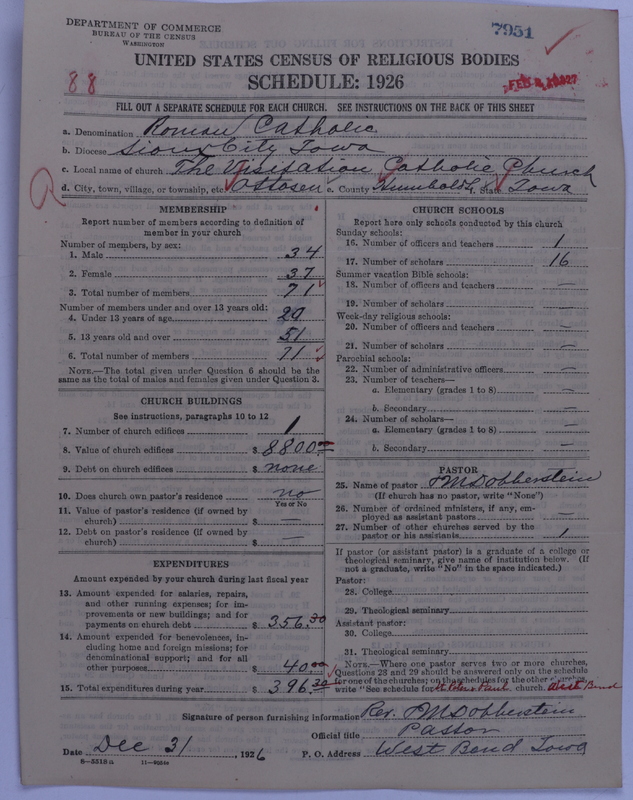 DEPARTMENT OF COMMERCE
BUREAU OF THE CENSUS
WASHINGTON
7951
UNITED STATES CENSUS OF RELIGIOUS BODIES
SCHEDULE: 1926
88
FILL OUT A SEPARATE SCHEDULE FOR EACH CHURCH. SEE INSTRUCTIONS ON THE BACK OF THIS SHEET
a. Denomination Roman Catholic
b. Diocese Sioux City Iowa
c. Local name of church The Visitation Catholic Church
d. City, town, village, or township, etc. Ottosen e. County Humboldt f. State Iowa
MEMBERSHIP
Report number of members according to definition of
member in your church
Number of members, by sex:
1. Male 34
2. Female 37
3. Total number of members 71
Number of members under and over 13 years old:
4. Under 13 years of age 20
5. 13 years old and over 51
6. Total number of members 71
NOTE.—The total given under Question 6 should be the
same as the total of males and females given under Question 3.
CHURCH BUILDINGS
See instructions, paragraphs 10 to 12
7. Number of church edifices 1
8. Value of church edifices $ 8800
9. Debt on church edifices $ none
10. Does church own pastor's residence no
Yes or No
11. Value of pastor's residence (if owned by
church) $ —
12. Debt on pastor's residence (if owned by
church) $ —
EXPENDITURES
Amount expended by your church during last fiscal year
13. Amount expended for salaries, repairs,
and other running expenses; for im-
provements or new buildings; and for
payments on church debt $ 356.30
14. Amount expended for benevolences, in-
cluding home and foreign missions; for
denominational support; and for all
other purposes $ 40.00
15. Total expenditures during year $ 396.30
CHURCH SCHOOLS
Report here only schools conducted by this church
Sunday schools:
16. Number of officers and teachers 1
17. Number of scholars 16
Summer vacation Bible schools:
18. Number of officers and teachers —
19. Number of scholars —
Week-day religious schools:
20. Number of officers and teachers —
21. Number of scholars —
Parochial schools:
22. Number of administrative officers —
23. Number of teachers—
a. Elementary (grades 1 to 8) —
b. Secondary —
24. Number of scholars—
a. Elementary (grades 1 to 8) —
b. Secondary —
PASTOR
25. Name of pastor PM Dobberstein
(If church has no pastor, write "None")
26. Number of ordained ministers, if any, em-
ployed as assistant pastors —
27. Number of other churches served by the
pastor or his assistants 1
If pastor (or assistant pastor) is a graduate of a college or
theological seminary, give name of institution below. (If
not a graduate, write "No" in the space indicated.)
Pastor:
28. College
29. Theological seminary
Assistant pastor:
30. College
31. Theological seminary
NOTE.—Where one pastor serves two or more churches,
Questions 28 and 29 should be answered only on the schedule
for one of the churches; on the schedules for the other churches,
write "See schedule for St Peter & Paul church. West Bend
Signature of person furnishing information Rev. PM Dobberstein
Official title Pastor
Date Dec 31, 1926 P. O. Address West Bend Iowa